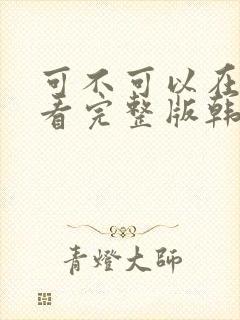 可不可以在
看完整版韩
青燈大師